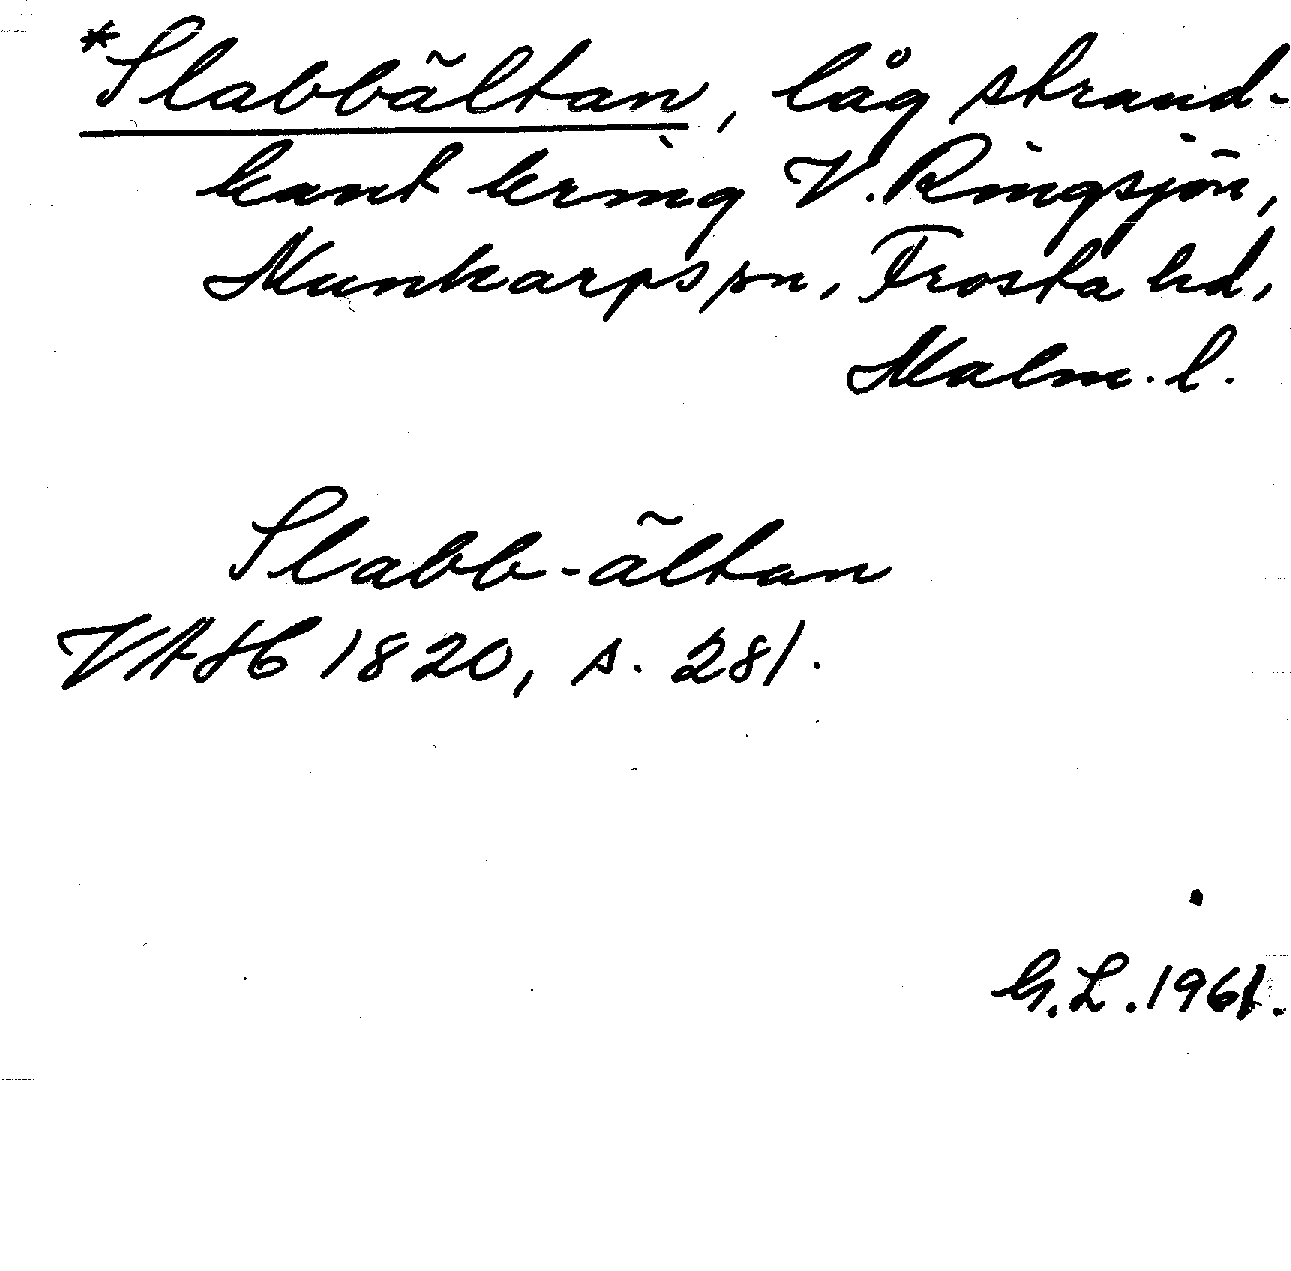 *Slabbältan, låg strand-
kant kring V. Ringsjön,
Munkarps sn, Frosta hd,
Malm. l.
Slabb-ältan
VAH 1820, s. 281.
G.L. 1961.